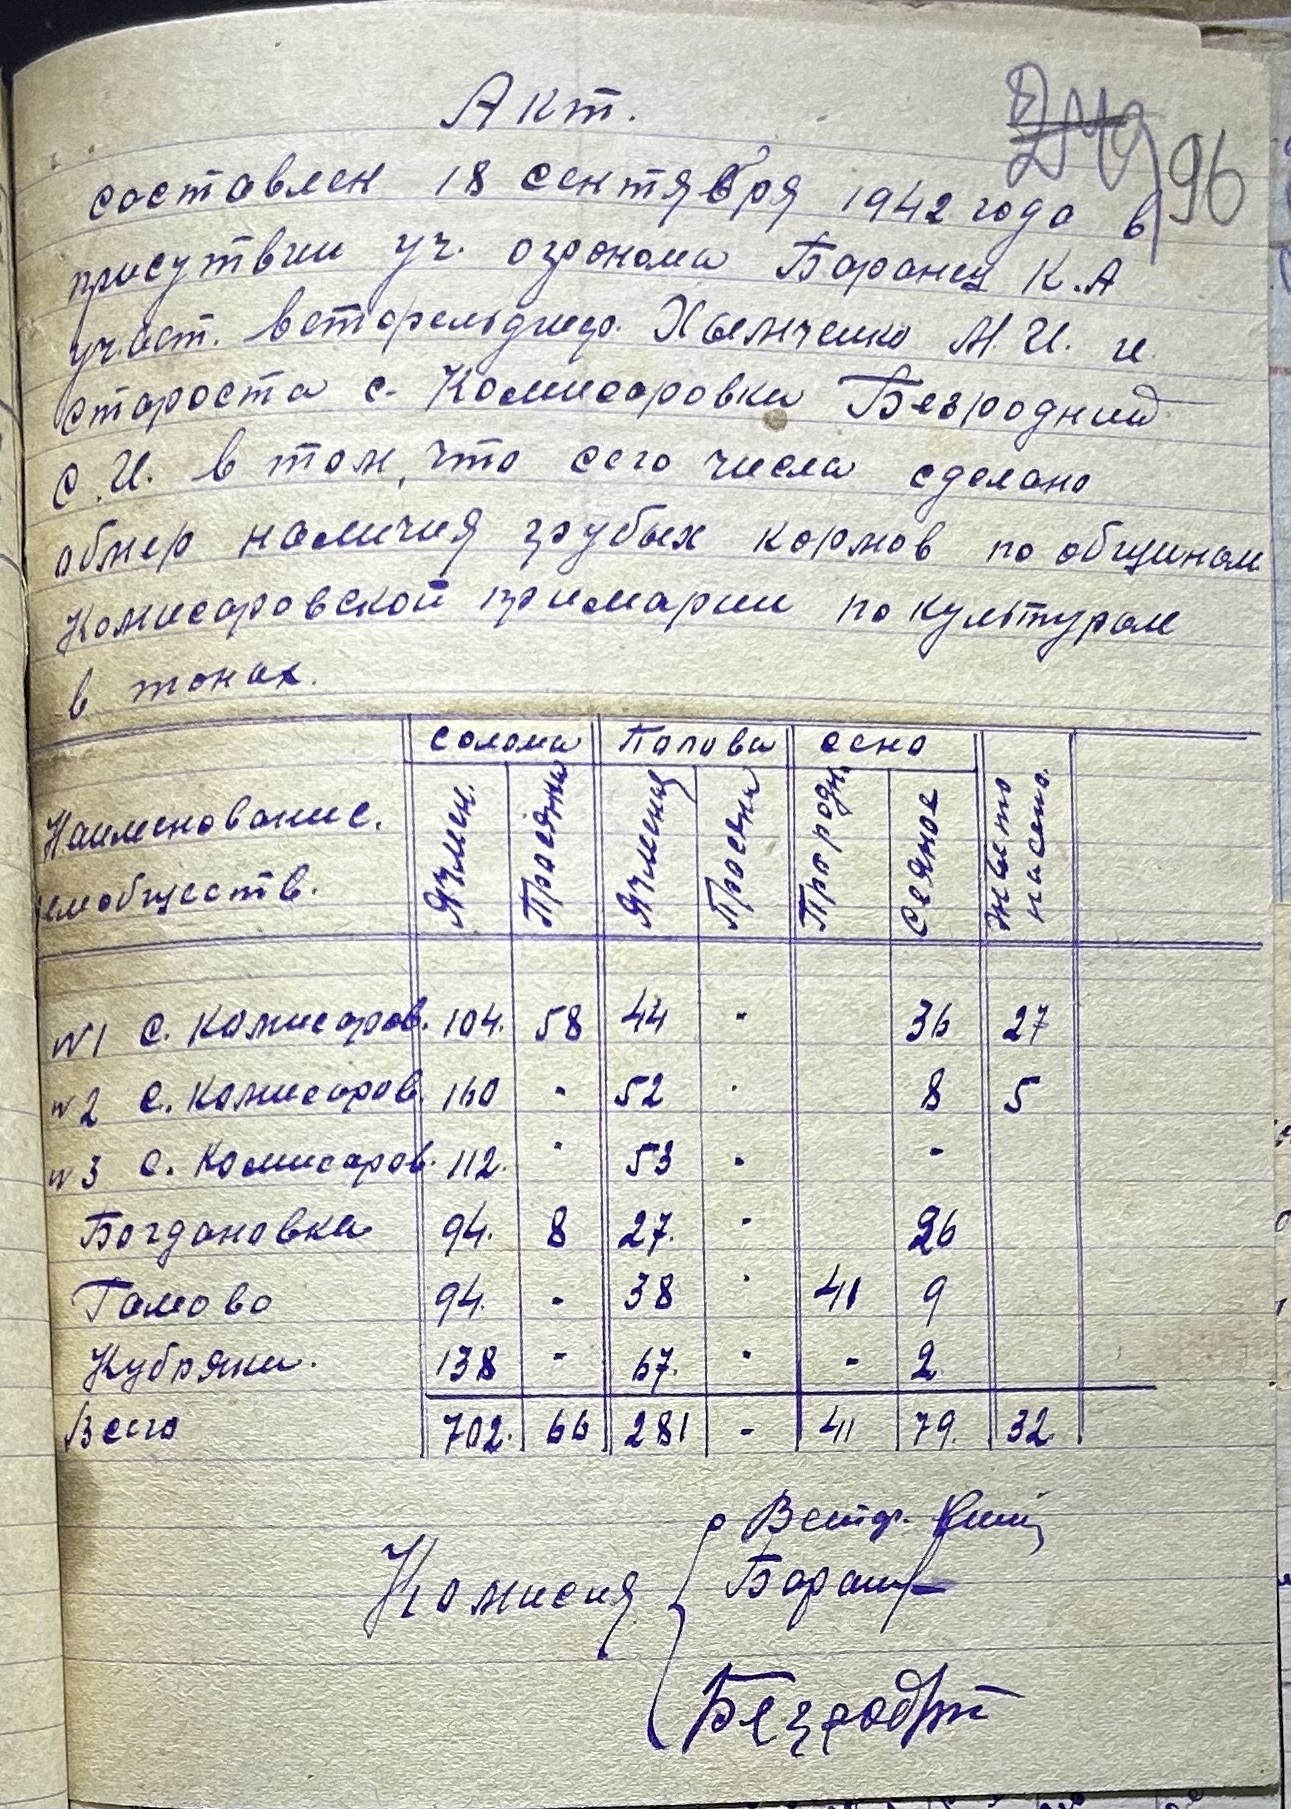 Акт.
96
составлен 18 сентября 1942 года в
присутвии уч. огронома Баранец К.А
участ. ветфельдшер. М.И. и
староста с. Комисаровки Безродний
С.И. в том, что сего числа сделано
обмер наличия грубых кормов по общинам
Комисаровской примарии по культурам
в тонах.
Наименование. солома Полова сено
земобществ. Ячмен. Просяна Ячмена Просяна Природн. Сеяное
№1 С. Комисаров. 104. 58 44 - 36 27
№2 С. Комисаров. 160 - 52 - 8 5
№3 С. Комисаров. 112. - 53 - -
Богдановка 94. 8 27. - 26
Гамово 94. - 38 - 41 9
Кубряки. 138 - 67. - - 2
Всего 702. 66 281 - 41 79. 32
Ветф.
Комисия
Баранец
Безродний